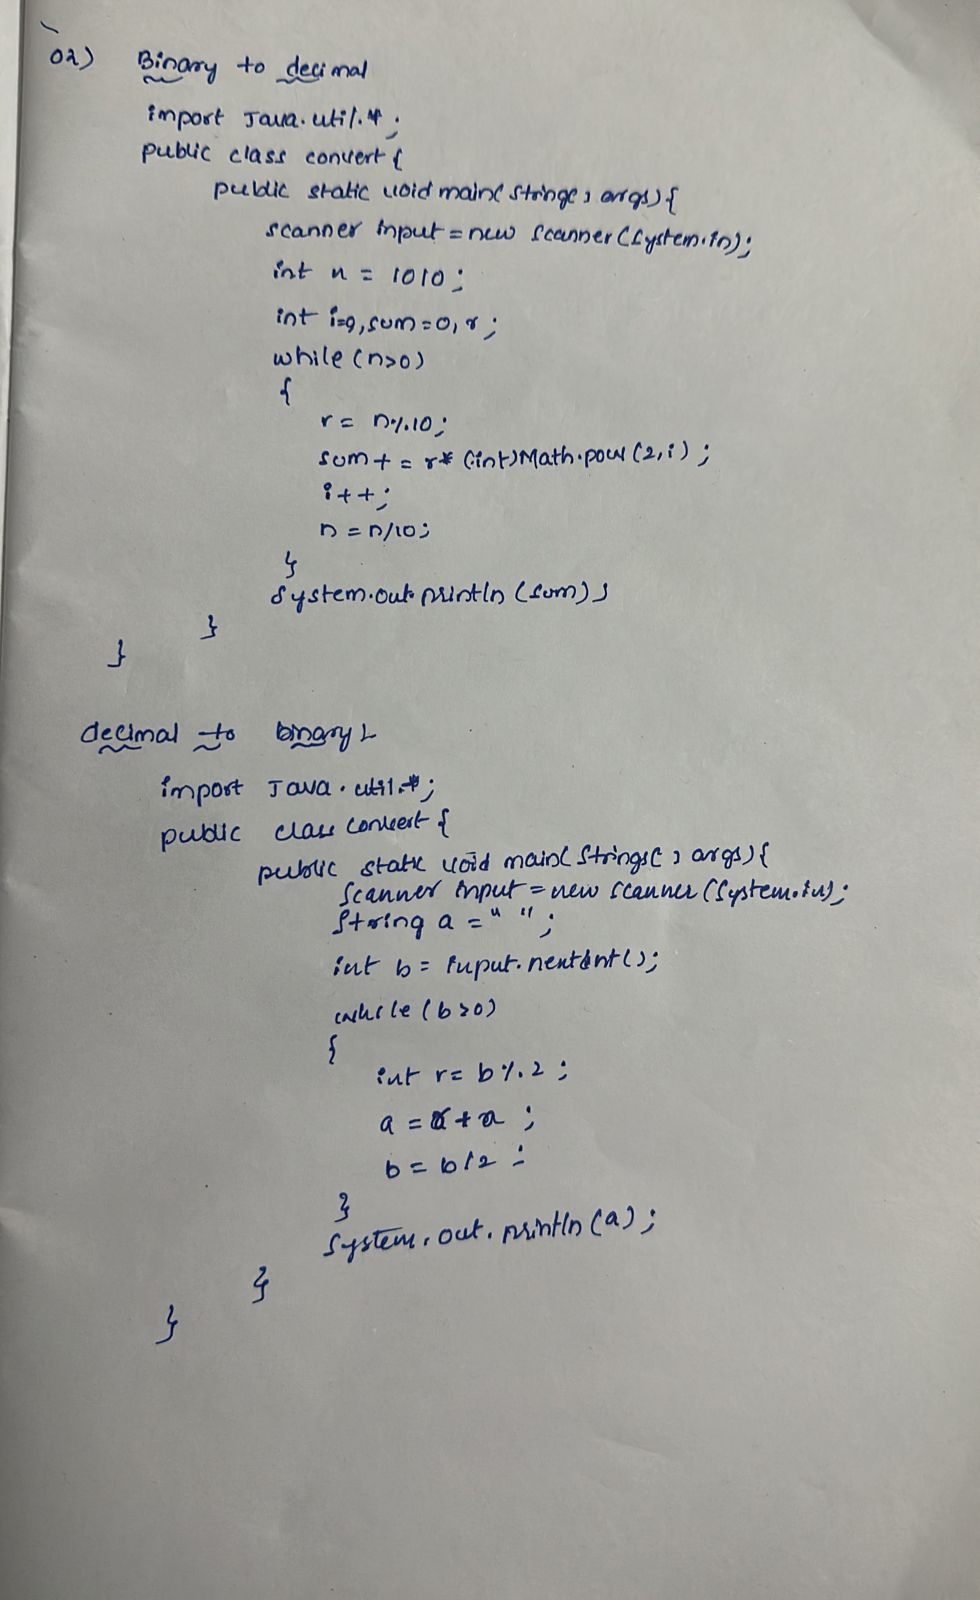 02) Binary to decimal
import Java.util.*;
public class convert {
public static void main( String[ ] args) {
scanner input = new Scanner (System.in);
int n = 1010;
int i=0, sum=0, r;
while (n>0)
{
r = n%10;
sum + = r* (int)Math.pow (2,i);
i++;
n = n/10;
}
System.out.println (sum);
}
}
decimal to binary
import Java.util.*;
public class convert {
public static void main( Strings[ ] args) {
Scanner input = new Scanner (System.in);
String a = " ";
int b = input.nextInt();
while (b>0)
{
int r = b%2;
a = r + a;
b = b/2;
}
System.out.println (a);
}
}